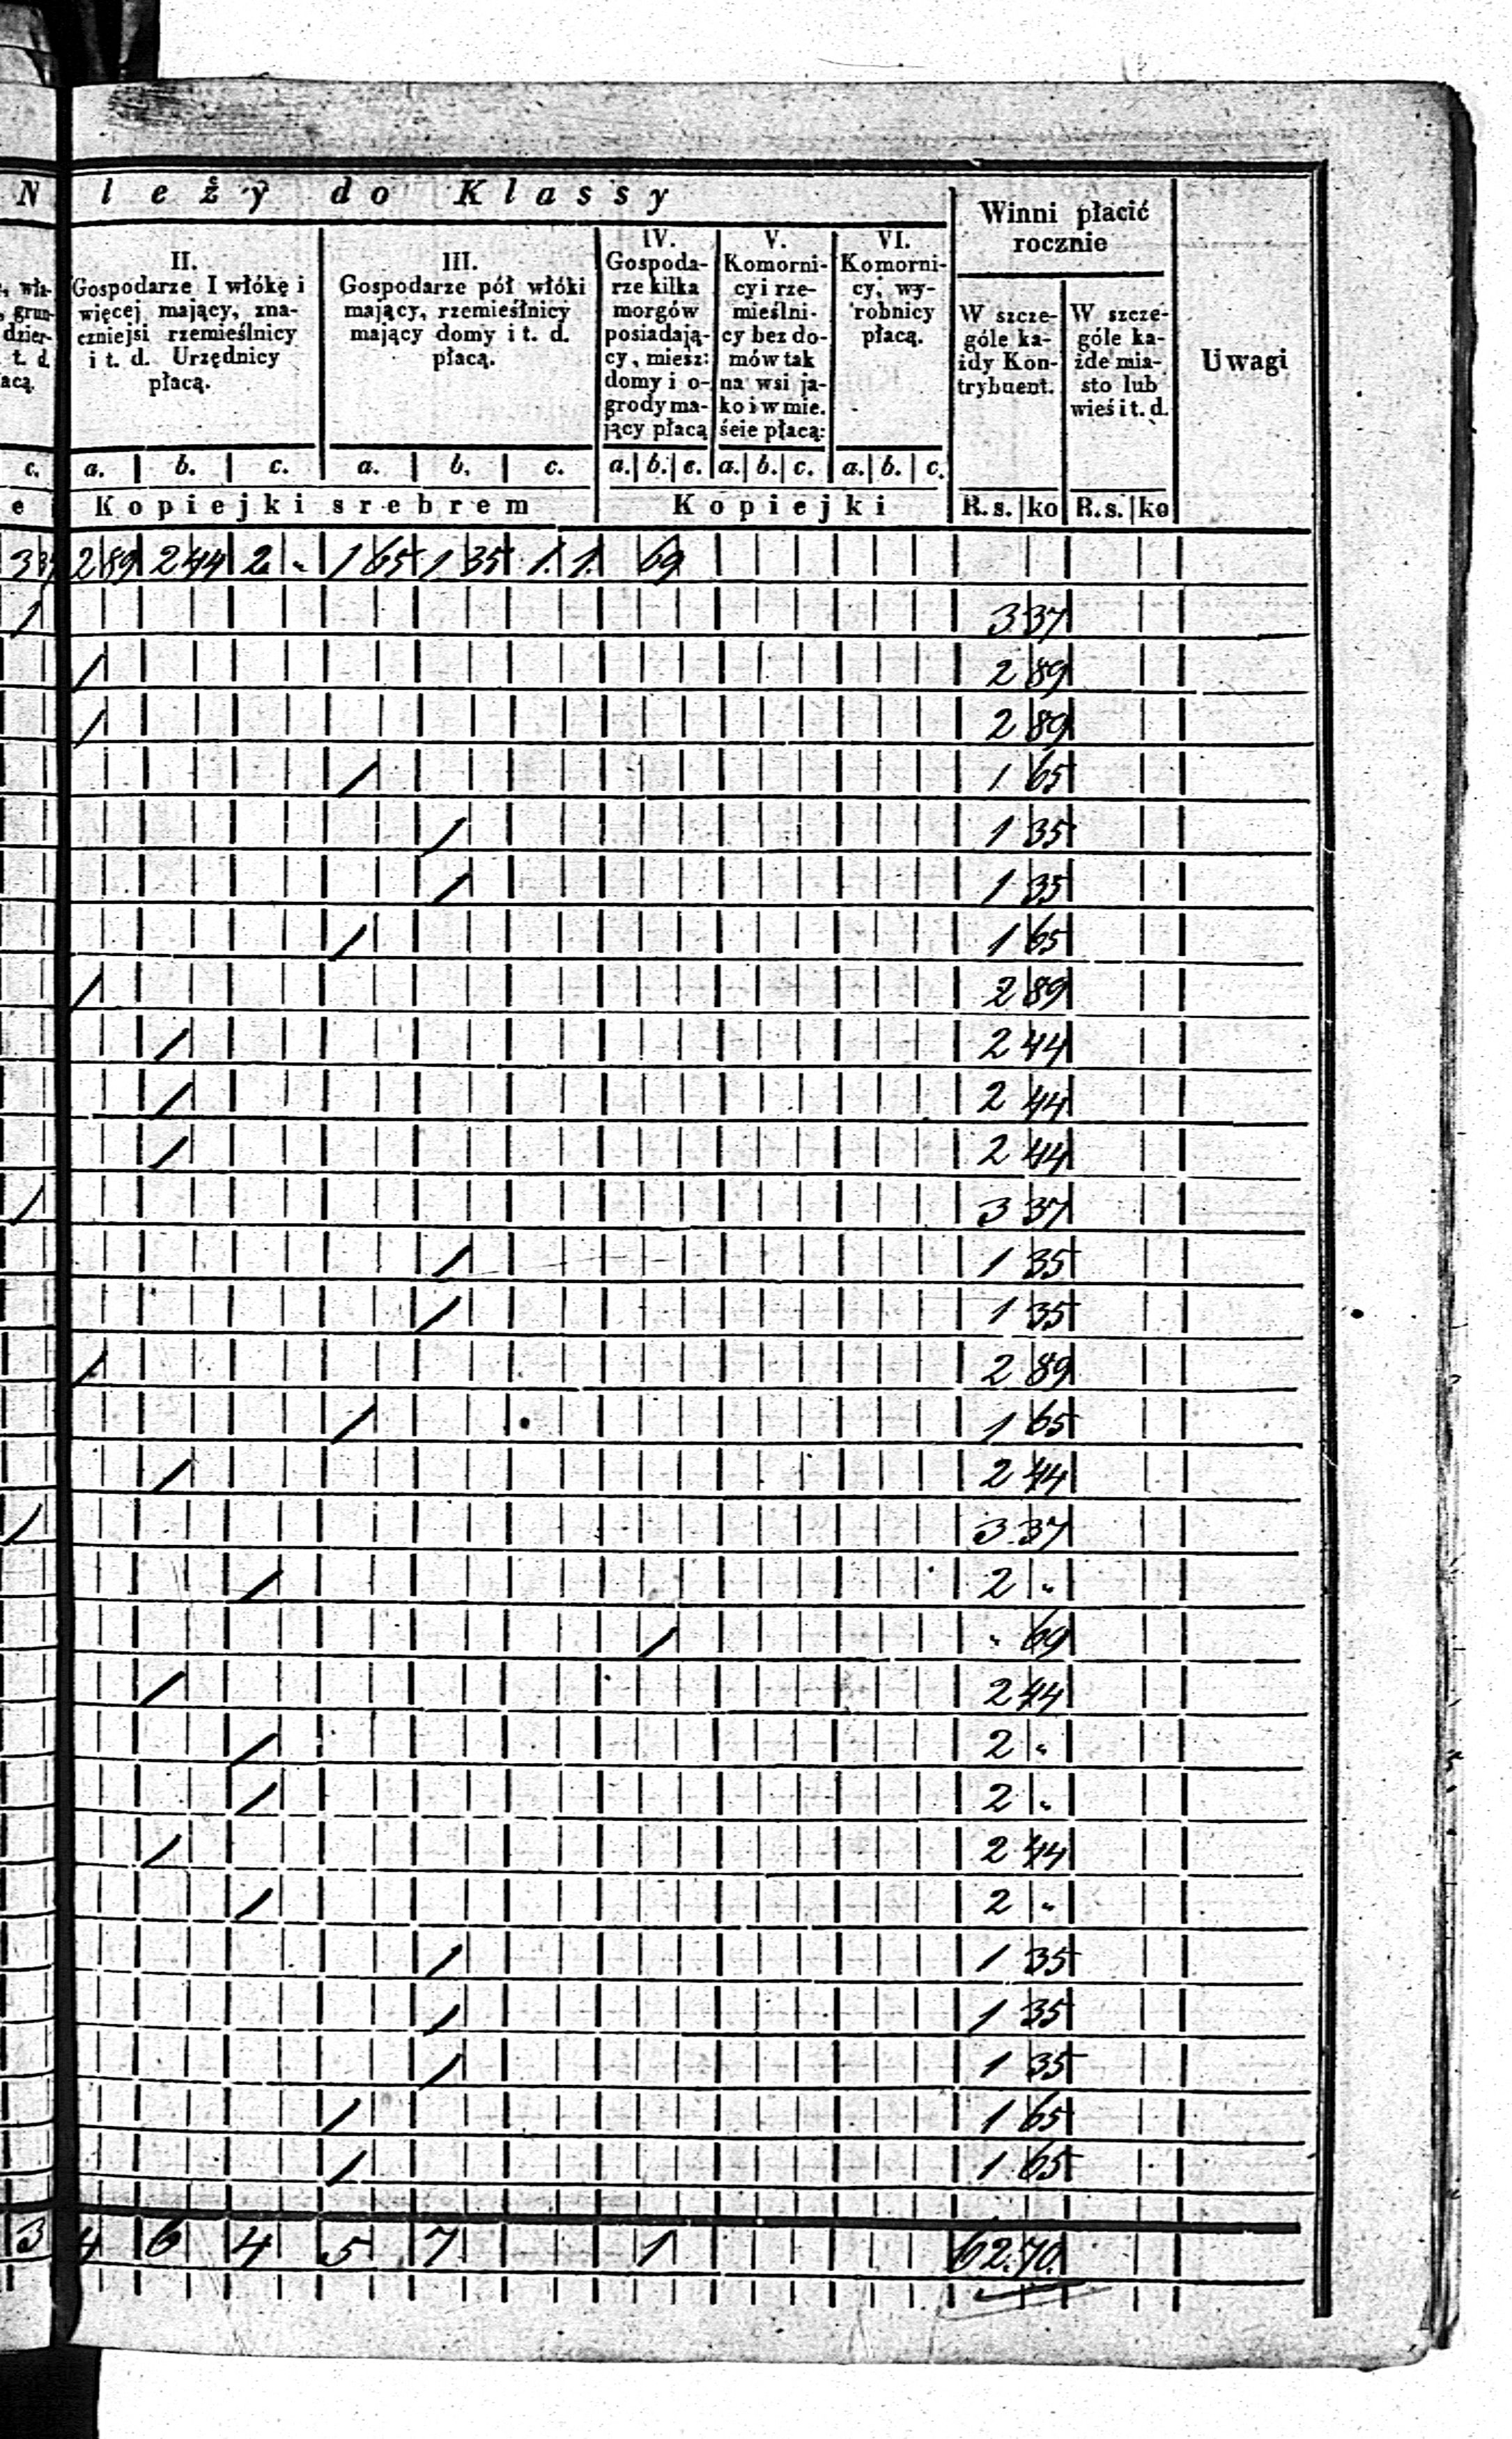 N leży do Klassy
Winni płacić rocznie
Uwagi
, wła-
, grun-
dzier-
t. d.
acą.
II.
Gospodarze I włókę i
więcej mający, zna-
czniejsi rzemieślnicy
i t. d. Urzędnicy
płacą.
III.
Gospodarze pół włóki
mający, rzemieślnicy
mający domy i t. d.
płacą.
IV.
Gospoda-
rze kilka
morgów
posiadają-
cy, miesz:
domy i o-
grody ma-
jący płacą
V.
Komorni-
cy i rze-
mieślni-
cy bez do-
mów tak
na wsi ja-
ko i w mie.
ście płacą:
VI.
Komorni-
cy, wy-
robnicy
płacą.
W szcze-
góle ka-
żdy Kon-
trybuent.
W szcze-
góle ka-
żde mia-
sto lub
wieś i t. d.
c. a. b. c. a. b. c. a. b. c. a. b. c. a. b. c.
e Kopiejki srebrem Kopiejki R.s. ko R.s. ko
2 89 2 44 2 " 1 65 1 35 1. 1. 69
/ 3 37
/ 2 89
/ 2 89
/ 1 65
/ 1 35
/ 1 35
/ 1 65
/ 2 89
/ 2 44
/ 2 44
/ 2 44
/ 3 37
/ 1 35
/ 1 35
/ 2 89
/ 1 65
/ 2 44
/ 3 37
/ 2 "
/ " 69
/ 2 44
/ 2 "
/ 2 "
/ 2 44
/ 2 "
/ 1 35
/ 1 35
/ 1 35
/ 1 65
/ 1 65
3 4 6 4 5 7 1 62.70.